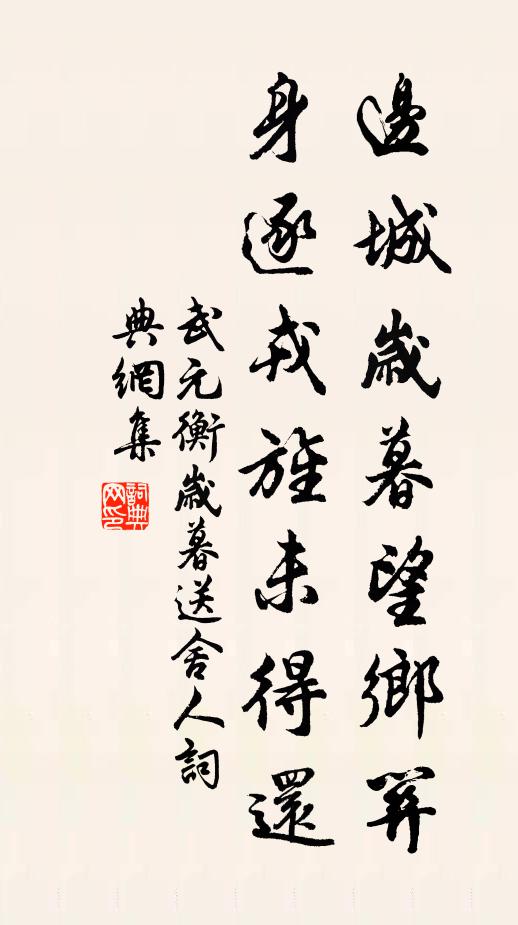 邊城歲暮望鄉關
身逐戎旌未得還
武元衡歲暮送舍人詞
典網集
詞典
网印